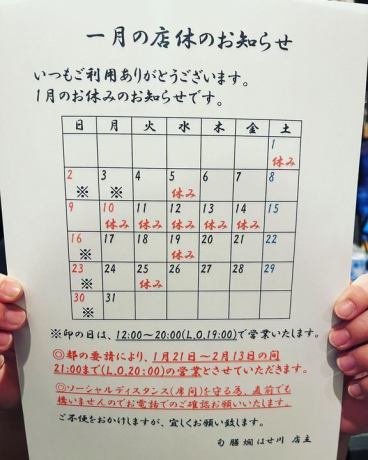 一月の店休のお知らせ
いつもご利用ありがとうございます。
1月のお休みのお知らせです。
日 月 火 水 木 金 土
1
休み
2 3 4 5 6 7 8
※ ※ 休み
9 10 11 12 13 14 15
休み 休み 休み 休み 休み
16 17 18 19 20 21 22
※ 休み
23 24 25 26 27 28 29
※ 休み
30 31
※
※印の日は、12:00～20:00(L,O,19:00)で営業いたします。
◎都の要請により、1月21日～2月13日の間
21:00まで(L,O,20:00)とさせていただきます。
◎ソーシャルディスタンス(席間)を守る為、直前でも
構いませんのでお電話でのご確認お願いいたします。
ご不便をおかけしますが、宜しくお願い致します。
旬膳燗 はせ川 店主